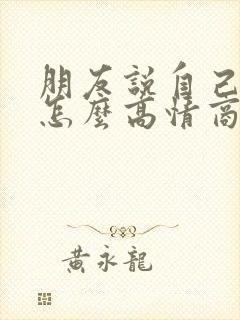 朋友說自己
怎麼高情商
黃永龍